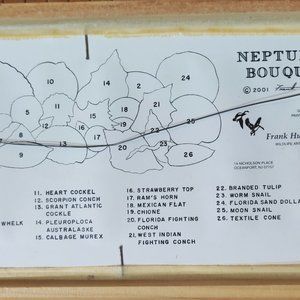 NEPTUNE
BOUQU
© 2001
24
10
5
18
11
19
25
1
2
13
22
8
12
20
6
23
9
26
Frank Hu
WILDLIFE AR
14 NICHOLSON PLACE
OCEANPORT, NJ 07757
WHELK
11. HEART COCKEL
12. SCORPION CONCH
13. GRANT ATLANTIC
COCKLE
14. PLEUROPLOCA
AUSTRALASKE
15. CALBAGE MUREX
16. STRAWBERRY TOP
17. RAM'S HORN
18. MEXICAN FLAT
19. CHIONE
20. FLORIDA FIGHTING
CONCH
21. WEST INDIAN
FIGHTING CONCH
22. BRANDED TULIP
23. WORM SNAIL
24. FLORIDA SAND DOLLA
25. MOON SNAIL
26. TEXTILE CONE